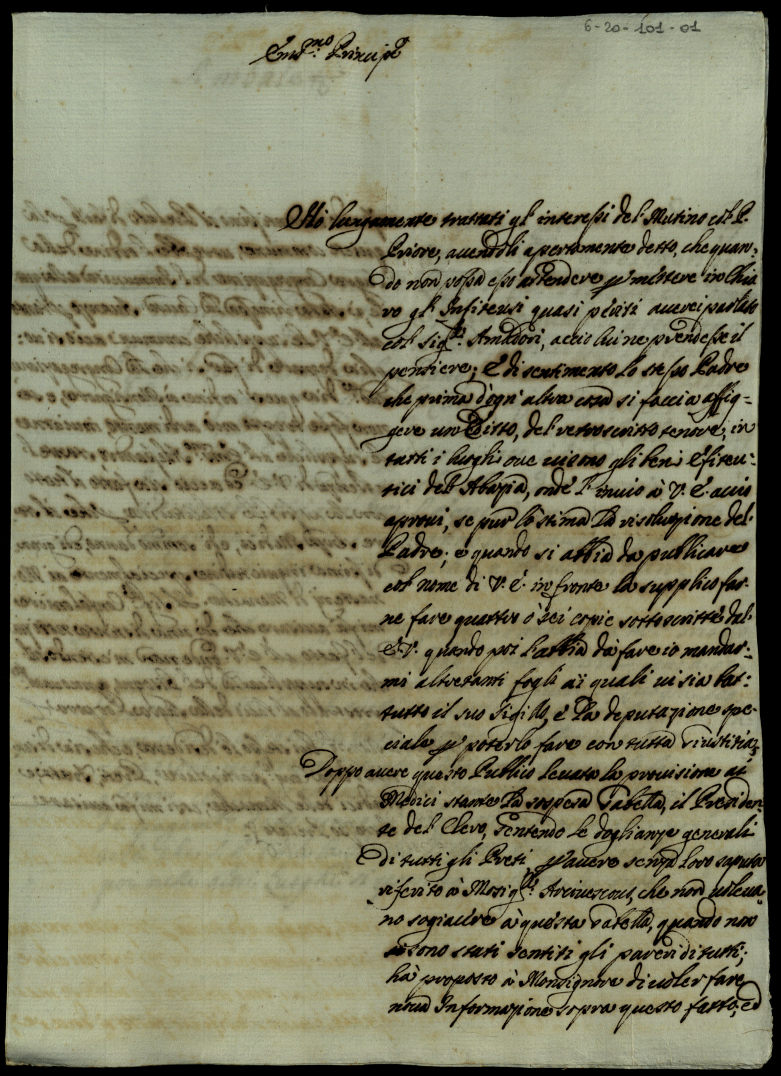 6-20-101-01
Em.mo Principe
Hò largamente trattati gl' interessi del Mutino col P.
Priore, auendoli apertamente detto, che quan-
do non possa esso attendere p mettere in Chia
ro gl' Infiteusi quasi p(er)siti auerei parlato
col Sig.r Amadori, acciò lui ne prendesse il
pensiere; È di sentimento lo stesso Padre
che prima d'ogn' altra cosa si faccia affig-
gere un Editto, del retroscritto tenore, in
tutti i luoghi oue uisono gli beni Efiteu-
tici dell' Abazia, onde l' inuio à V. E. acciò
aproui, se pur lo stima la risoluzione del
Padre; e quando si abbia da publicare
col nome di V. E. in fronte la supplico far-
ne fare quattro ò sei copie sottoscritte dal-
l' E.V. quando poi l'abbia dà fare io mandar-
mi altretanti fogli ai quali ui sia bat-
tutto il suo sigillo, è la deputazione spe-
ciale p poterlo fare con tutta giustizia.
Doppo auere questo Publico leuata la prouisione ai
Medici stante la sospesa Tabella, il Presiden-
te del Clero, sentendo le doglianze generali
di tutti gli Preti p auere senza loro saputa
riferito à Monsig.r Arciuescouo, che non uoleua-
no sogiacere à questa Tabella, quando non
si sono stati sentiti gli pareri di tutti;
hà proposto à Monsignore di uoler fare
noua Informazione sopra questo fatto, ed